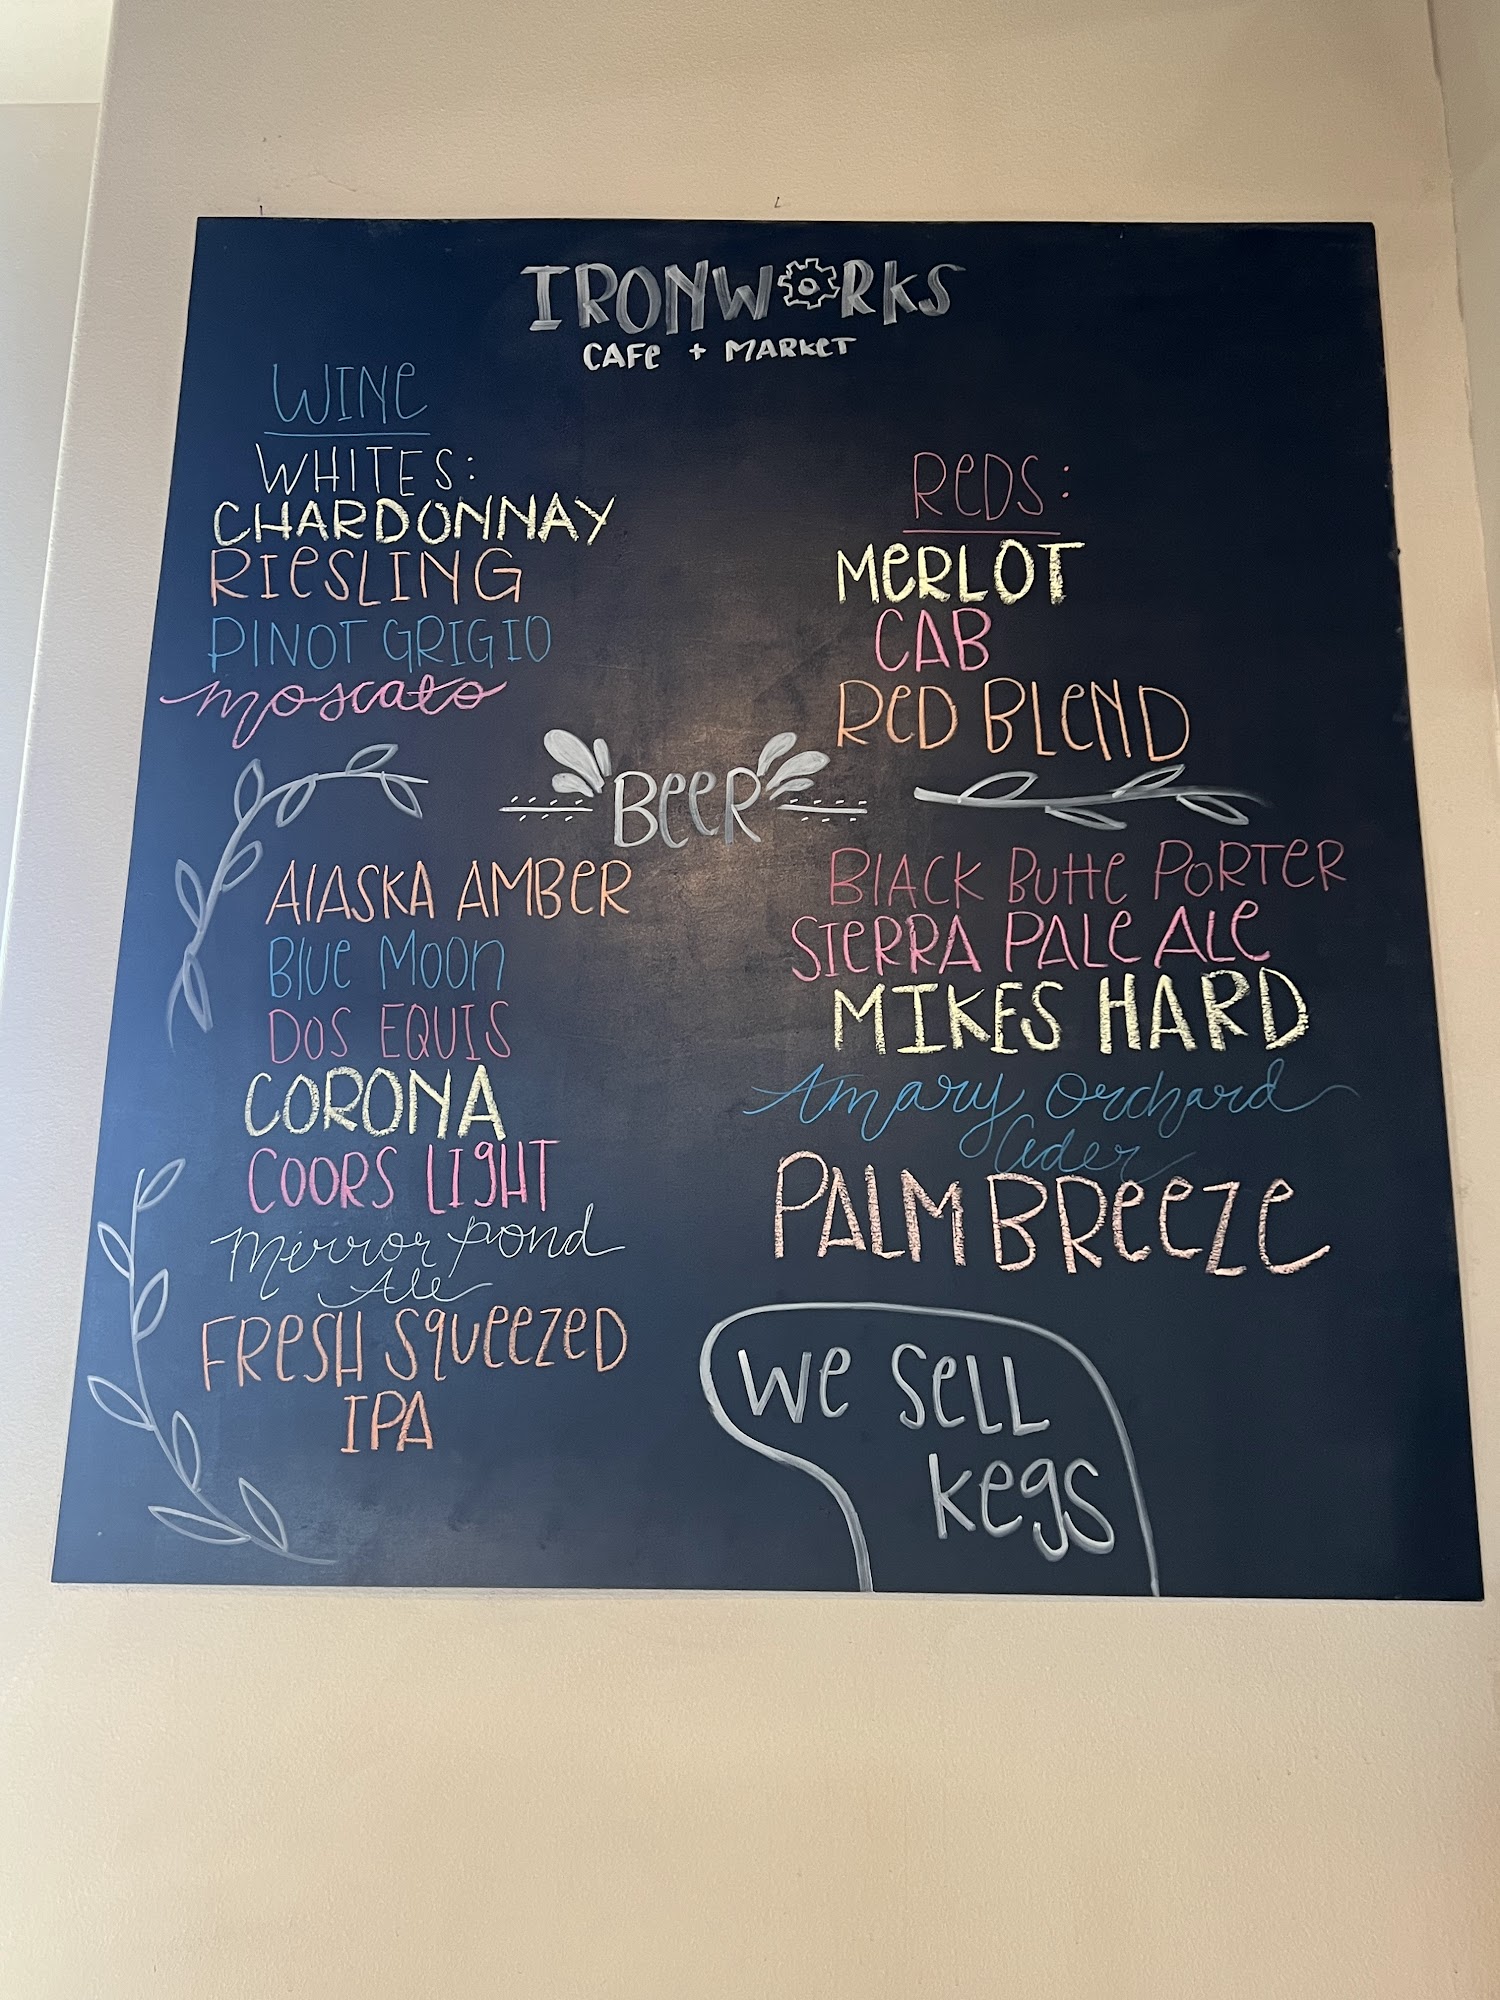 IRONWORKS
CAFE + MARKET
WINE
WHITES:
CHARDONNAY
RIESLING
PINOT GRIGIO
moscato
REDS:
MERLOT
CAB
RED BLEND
BEER
ALASKA AMBER
BLUE MOON
DOS EQUIS
CORONA
COORS LIGHT
Mirror pond
Ale
FRESH SQUEEZED
IPA
BLACK BUTTE PORTER
SIERRA PALE ALE
MIKES HARD
Amary Orchard
Cider
PALM BREEZE
WE SELL
KEGS